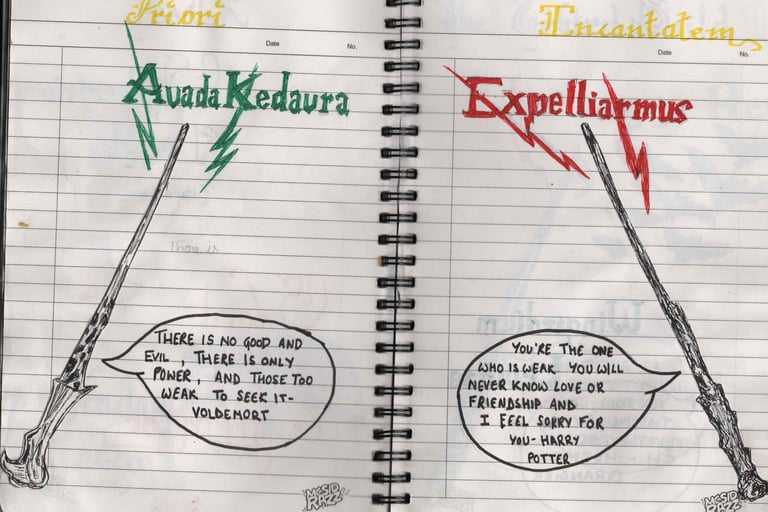 Priori
Date No.
Avada Kedavra
There is
THERE IS NO GOOD AND
EVIL, THERE IS ONLY
POWER, AND THOSE TOO
WEAK TO SEEK IT-
VOLDEMORT
MCSID
RAZZ
Incantatem
Date No.
Expelliarmus
YOU'RE THE ONE
WHO IS WEAK. YOU WILL
NEVER KNOW LOVE OR
FRIENDSHIP AND
I FEEL SORRY FOR
YOU- HARRY
POTTER
MCSID
RAZZ